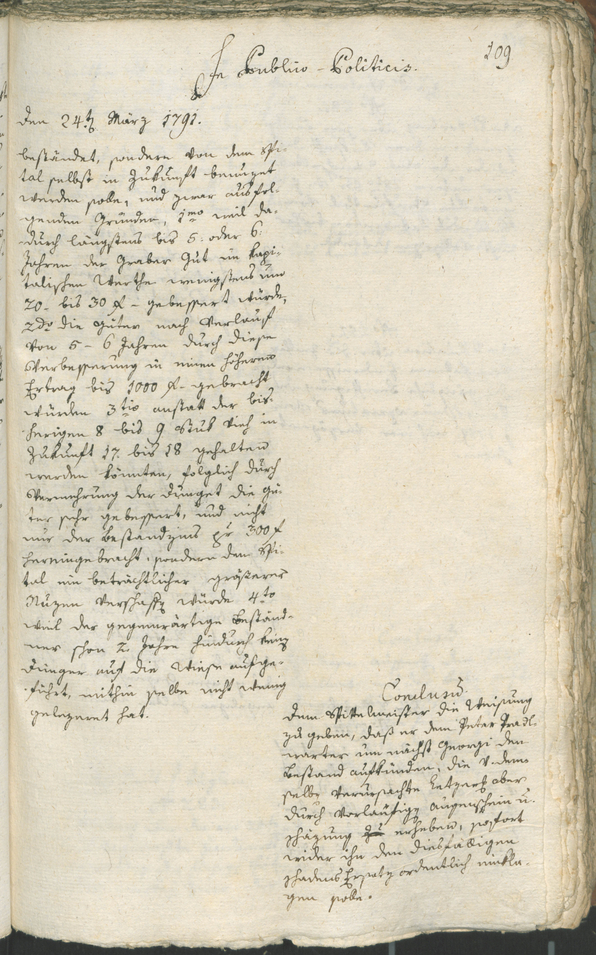 In Publico-Politicis.
109
Den 24t März 1791.
beständet, sondern von dem Spi-
tal selbst in Zukunft benuzet
werden solle, und zwar aus fol-
genden Gründen, 1mo weil da-
durch längstens bis 5. oder 6
Jahren der Graber Gut im kapi-
talischen Werthe wenigstens um
20- bis 30 f - gebessert würde,
2do die Güter nach Verlauf
von 5 - 6 Jahren durch diese
Verbesserung in einen höheren
Ertrag bis 1000 f - gebracht
würden 3tio anstatt der bis-
herigen 8 bis 9 Stuk Vieh in
Zukunft 17. bis 18 gehalten
werden könnten, folglich durch
Vermehrung der Dünget die Gü-
ter sehr gebessert, und nicht
nur der Bestandzins pr 300 f
hereingebracht, sondern dem Spi-
tal ein beträchtlicher größerer
Nuzen verschaft würde 4to
weil der gegenwärtige Beständ-
ner schon 2 Jahre hindurch keine
Dünger auf die Wiese aufge-
führt, mithin selbe nicht wenig
gelezeret hat.
Conclusum.
Dem Spittelmeister die Weisung
zu geben, daß er dem Peter
warter um nächst Georgi den
Bestand aufkünden, die v. dem-
selbe verursachte Letzerey aber
durch vorläufige Augenschein u.
Schäzung zu erheben, sofort
wider ihn den diesfälligen
Schadens Ersatz ordentlich einkla-
gen solle.